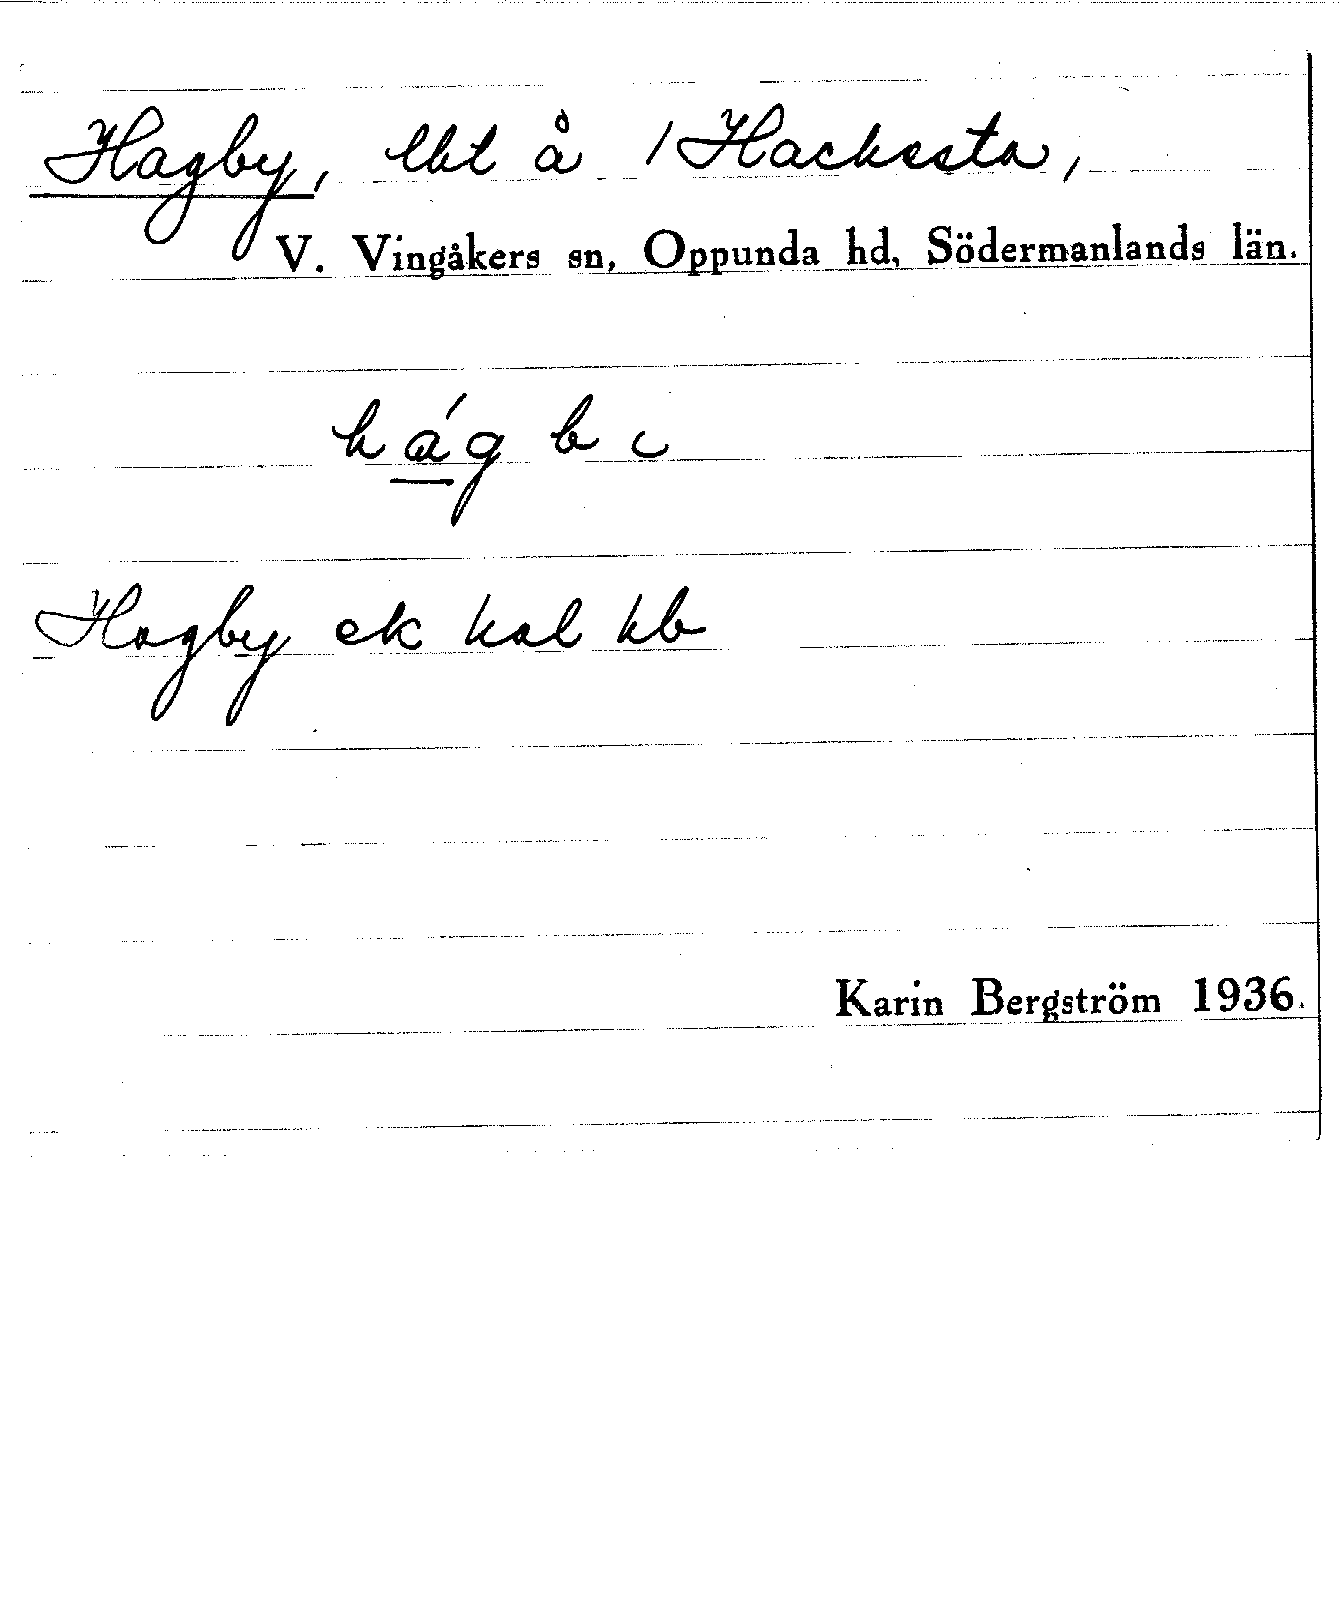 Hagby, lht å 1 Hacksta,
V. Vingåkers sn, Oppunda hd, Södermanlands län.
hág b ι
Hagby ek kal hb
Karin Bergström 1936.